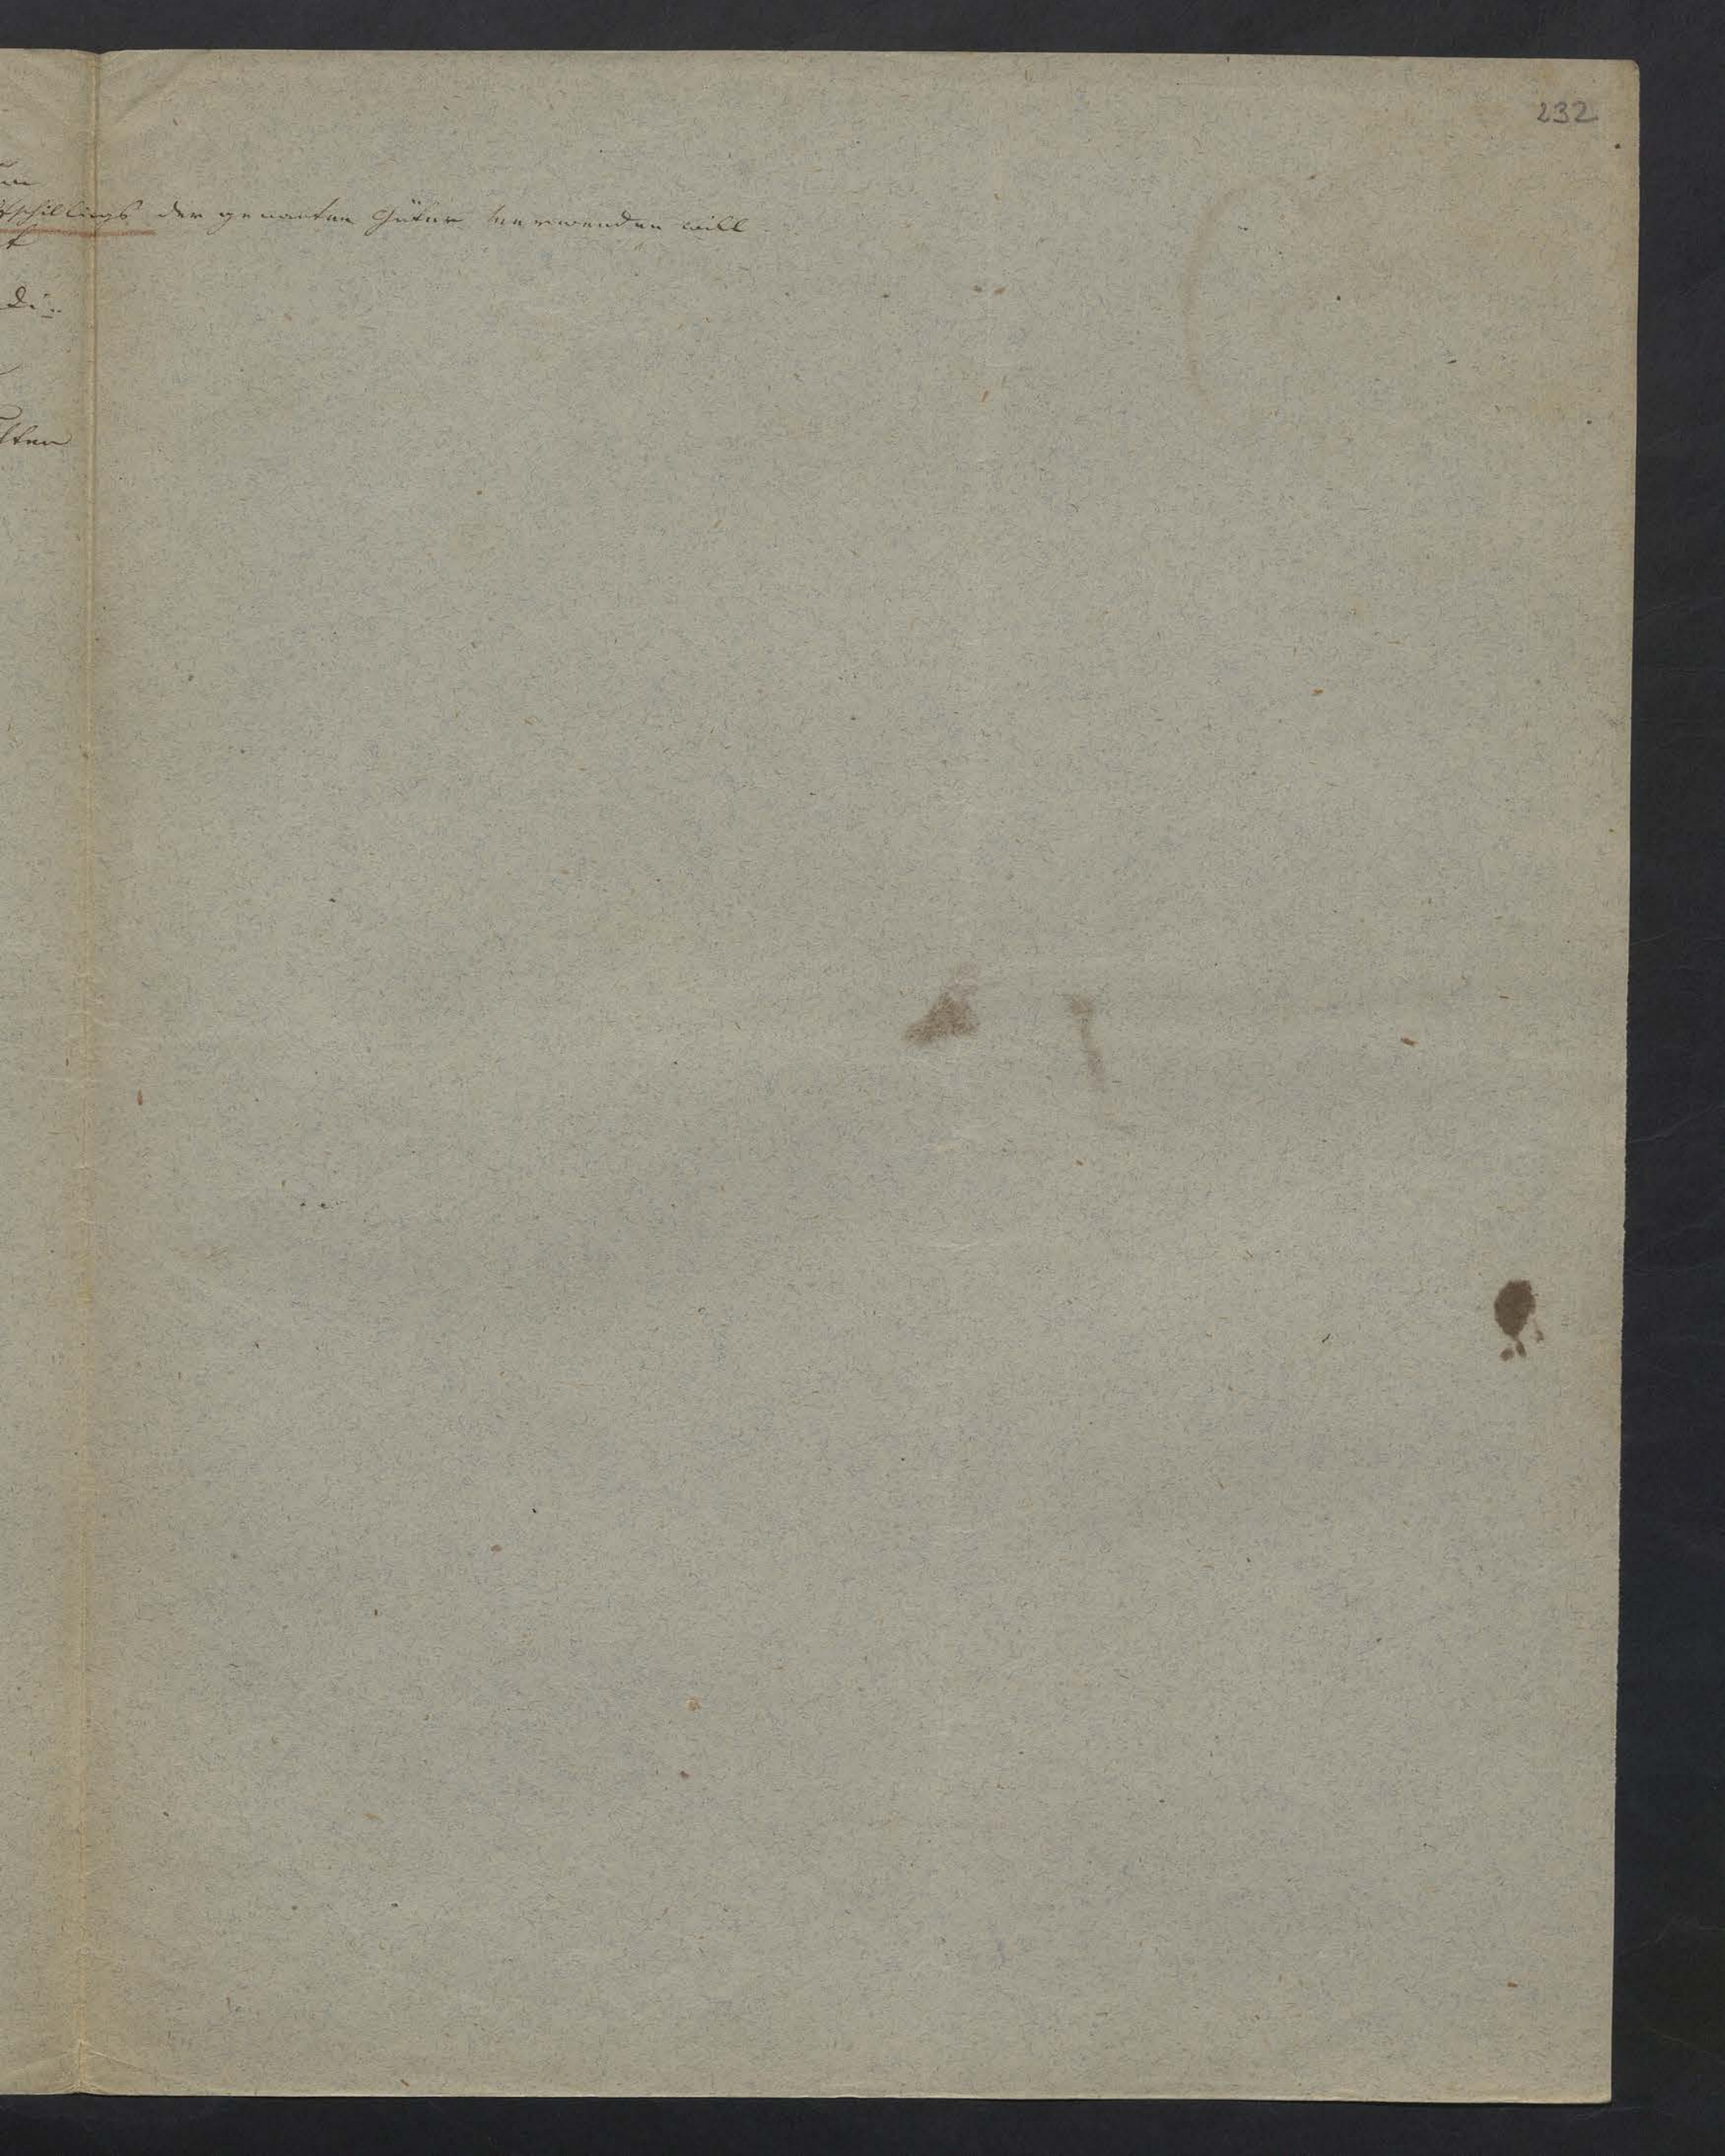 232
tschillings der genanten Güter verwenden will.
t
di
hten